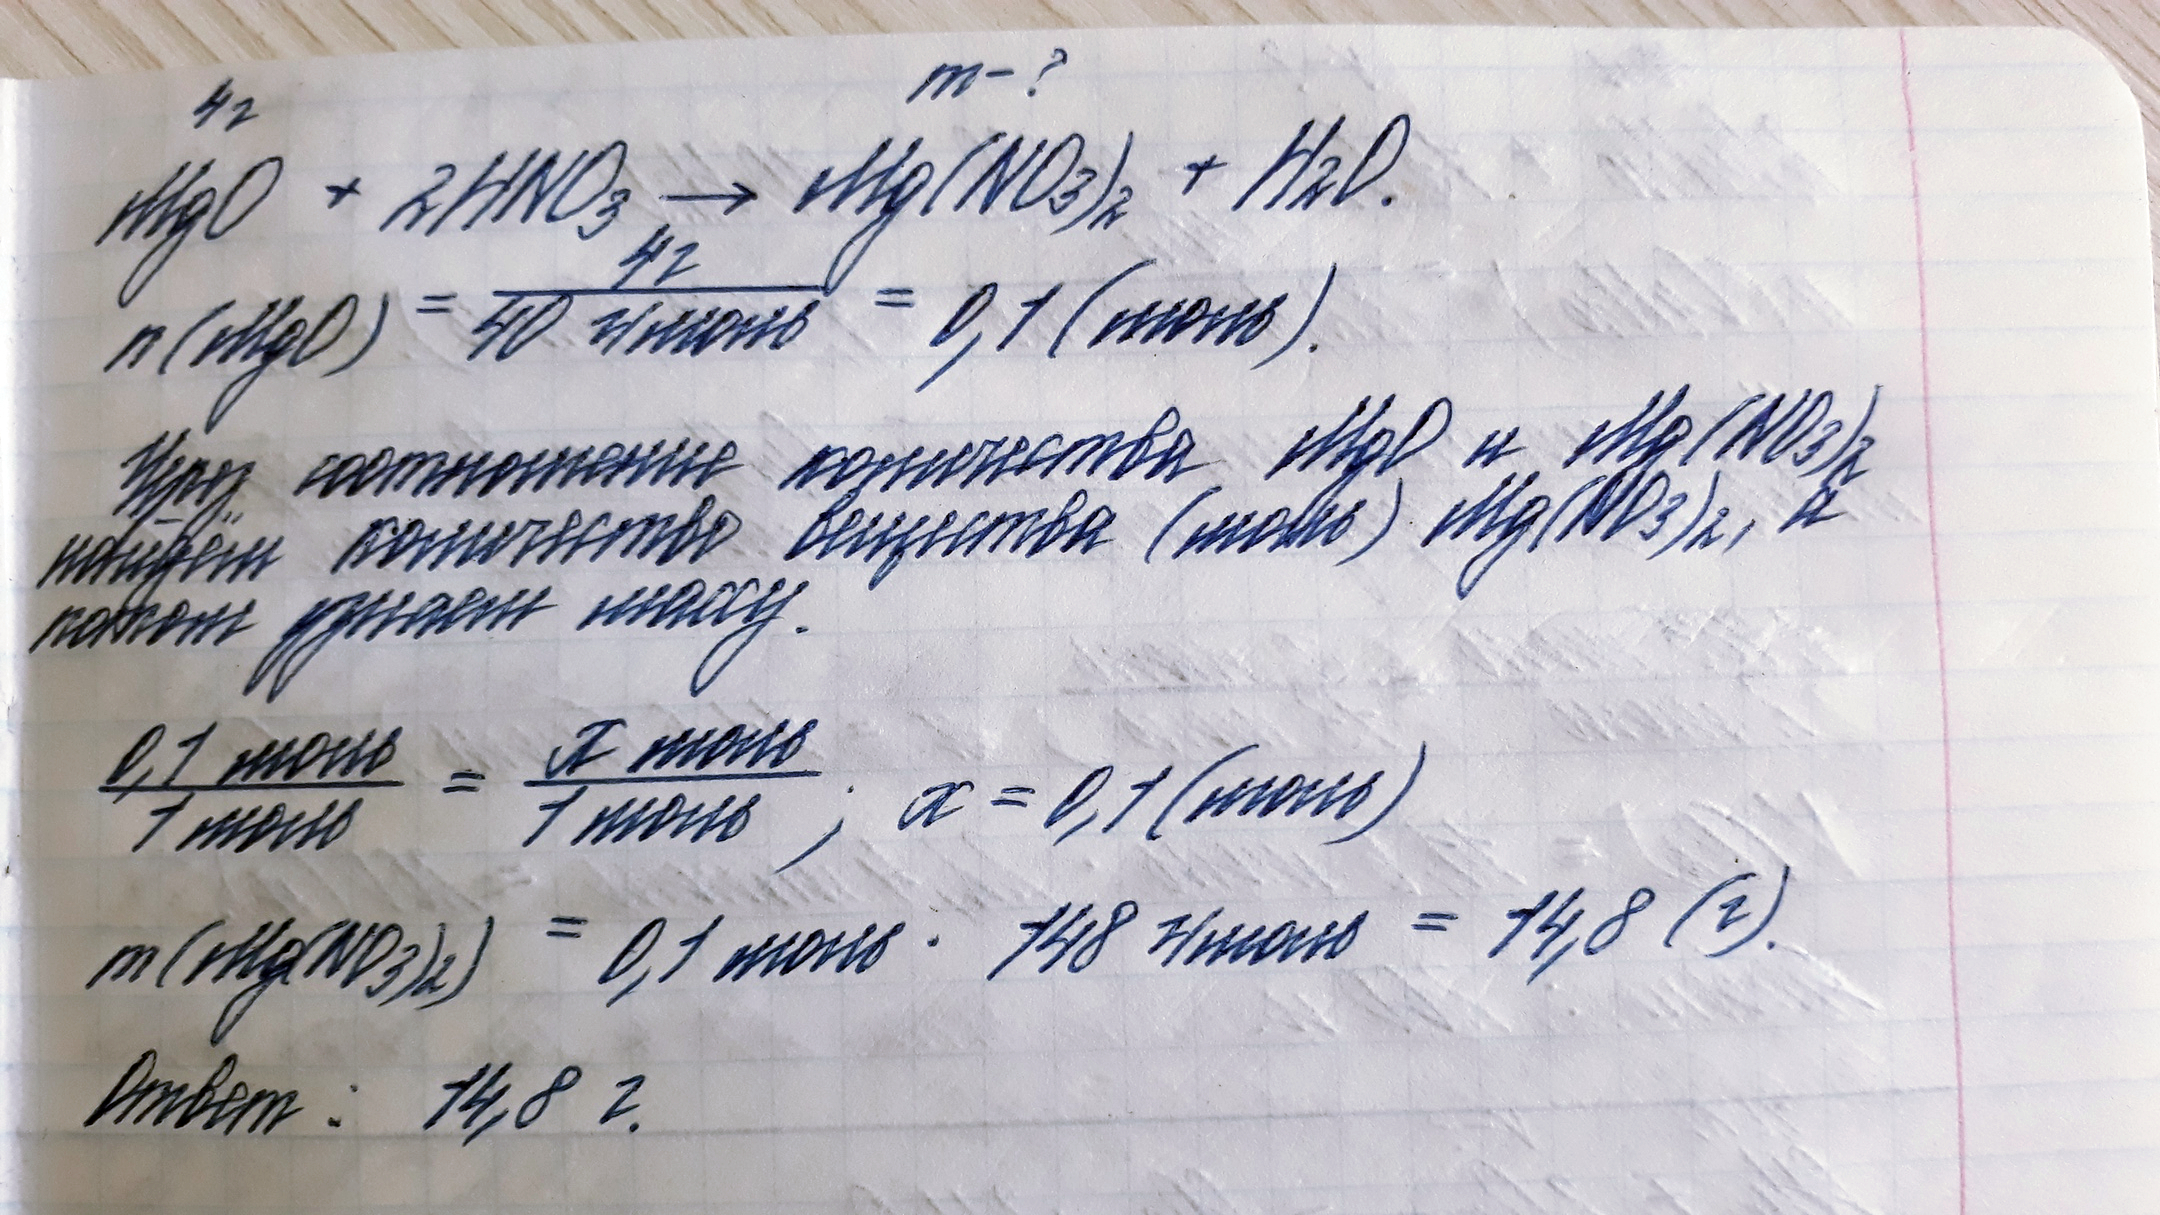 4г m-?
MgO + 2HNO₃ → Mg(NO₃)₂ + H₂O.
n(MgO) = 4г / 40 г/моль = 0,1 (моль).
Через соотношение количества MgO и Mg(NO₃)₂
найдём количество вещества (моль) Mg(NO₃)₂, а
потом узнаем массу.
0,1 моль / 1 моль = x моль / 1 моль ; x = 0,1 (моль)
m(Mg(NO₃)₂) = 0,1 моль · 148 г/моль = 14,8 (г).
Ответ: 14,8 г.